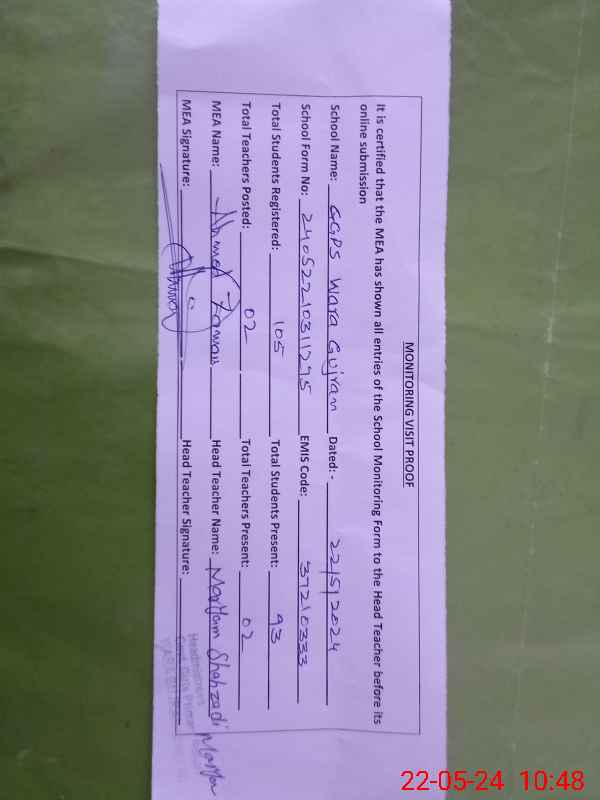 MONITORING VISIT PROOF
It is certified that the MEA has shown all entries of the School Monitoring Form to the Head Teacher before its
online submission
School Name: GGPS Wara Gujran Dated: - 22/5/2024
School Form No: 24052210311295 EMIS Code: 37210333
Total Students Registered: 105 Total Students Present: 93
Total Teachers Posted: 02 Total Teachers Present: 02
MEA Name: Ahmed Zaman Head Teacher Name: Maryam Shahzadi
MEA Signature: Head Teacher Signature:
Headmistress
Govt. Girls Primary
22-05-24 10:48